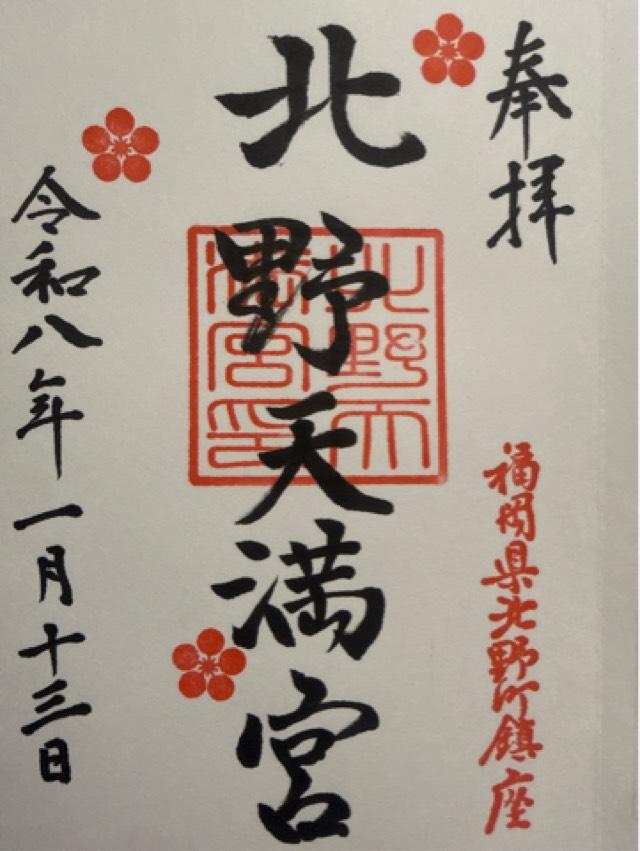 奉拝
福岡県北野町鎮座
北野天満宮
北野天満宮印
令和八年一月十三日